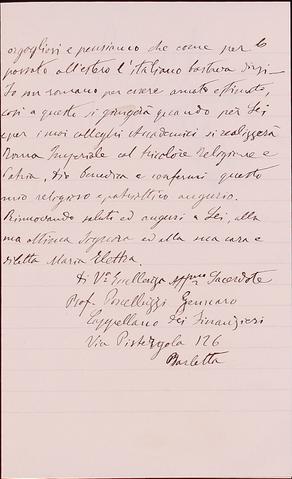 orgogliosi e pensiamo che come per lo
passato all'estero l'italiano bastava dirsi
Io son romano per essere amato e stimato,
così a questo si giungerà quando per Lei
e per i suoi colleghi Accademici si realizzerà
Roma Imperiale col tricolore Religione e
Patria, Dio benedica e confermi questo
mio religioso e patriottico augurio.
Rinnovando saluti ed auguri a Lei, alla
sua ottima Signora ed alla sua cara e
diletta Maria Elettra.
di Va Eccellenza Affmo Sacerdote
Prof. Porcelluzzi Gennaro
Cappellano dei Finanzieri
Via Pistergola 126
Barletta